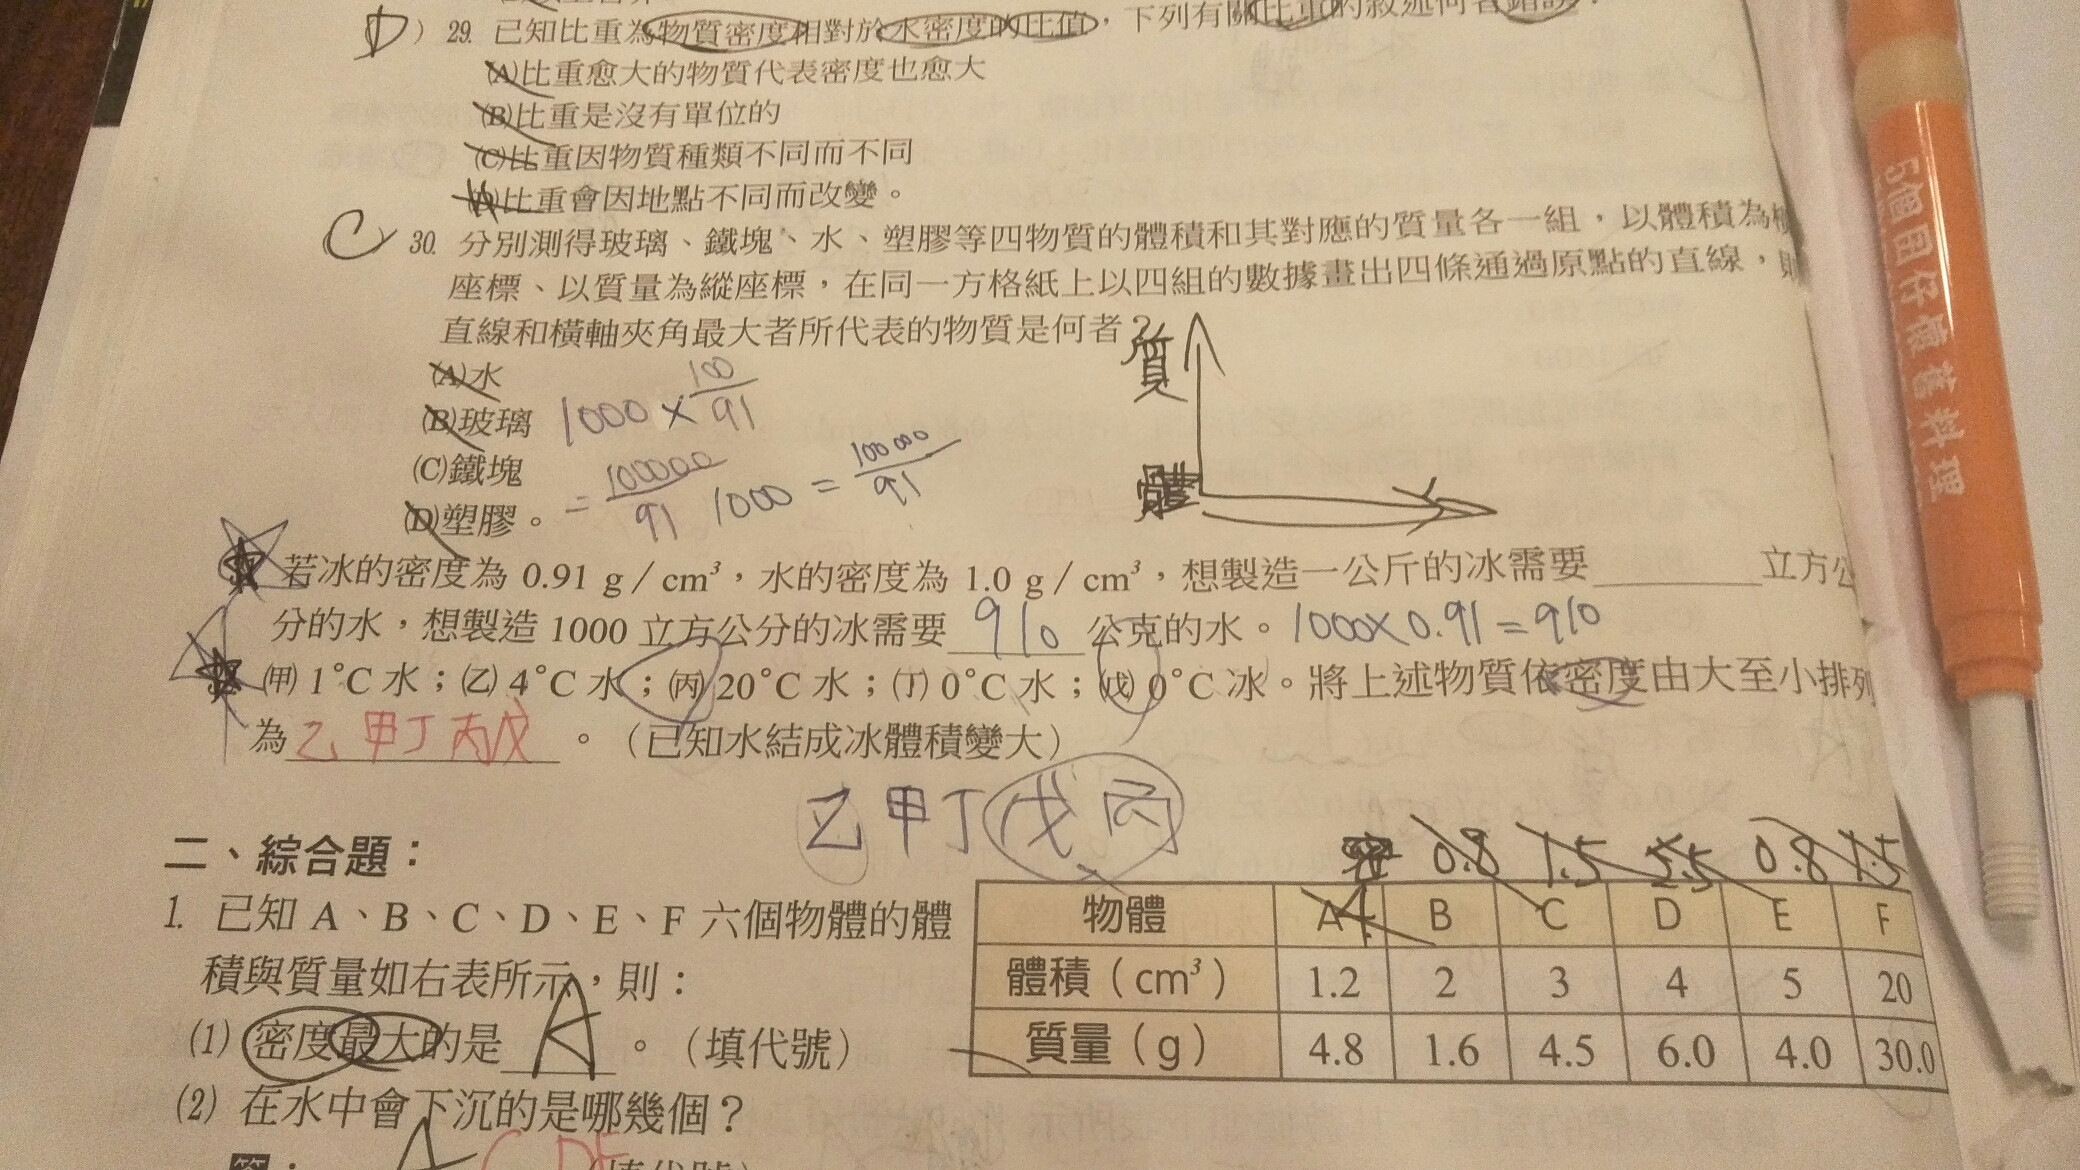 (D) 29. 已知比重為物質密度相對於水密度的比值，下列有關比重的敘述何者錯誤？
(A)比重愈大的物質代表密度也愈大
(B)比重是沒有單位的
(C)比重因物質種類不同而不同
(D)比重會因地點不同而改變。
C 30. 分別測得玻璃、鐵塊、水、塑膠等四物質的體積和其對應的質量各一組，以體積為橫
座標、以質量為縱座標，在同一方格紙上以四組的數據畫出四條通過原點的直線，則
直線和橫軸夾角最大者所代表的物質是何者？
質
(A)水
(B)玻璃 1000 × 100/91
(C)鐵塊 = 100000/91 1000 = 100000/91
體
(D)塑膠。
若冰的密度為 0.91 g／cm³，水的密度為 1.0 g／cm³，想製造一公斤的冰需要＿＿＿立方公
分的水，想製造 1000 立方公分的冰需要 910 公克的水。1000×0.91=910
(甲) 1°C 水；(乙) 4°C 水；(丙) 20°C 水；(丁) 0°C 水；(戊) 0°C 冰。將上述物質依密度由大至小排列
為 乙甲丁丙戊 。（已知水結成冰體積變大）
乙甲丁戊丙
二、綜合題：
密 0.8 1.5 0.8 1.5
1. 已知 A、B、C、D、E、F 六個物體的體
積與質量如右表所示，則：
(1) 密度最大的是 A 。（填代號）
(2) 在水中會下沉的是哪幾個？
答： A CDF （填代號）
物體 A B C D E F
體積（cm³） 1.2 2 3 4 5 20
質量（g） 4.8 1.6 4.5 6.0 4.0 30.0
5個日仔舊料理